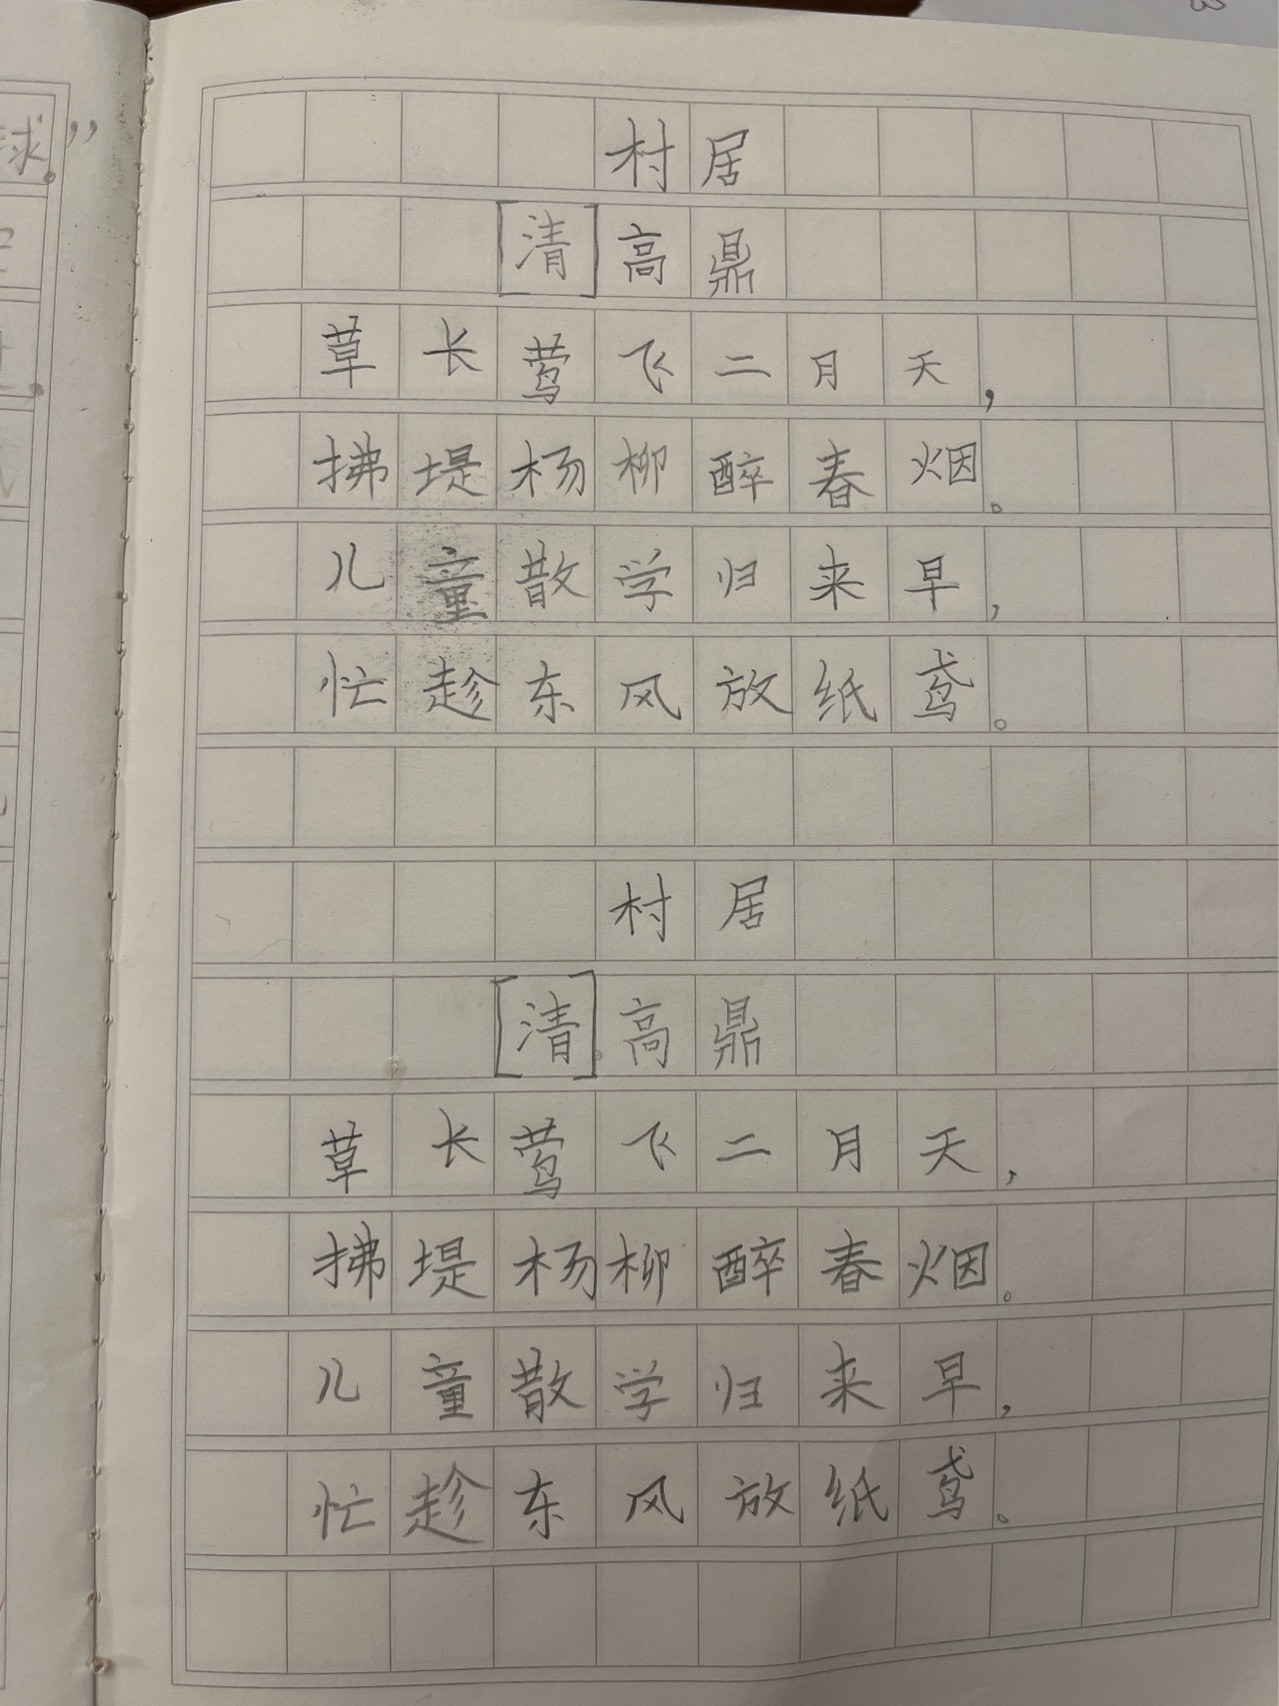 村居
[清]高鼎
草长莺飞二月天,
拂堤杨柳醉春烟。
儿童散学归来早,
忙趁东风放纸鸢。
村居
[清]高鼎
草长莺飞二月天,
拂堤杨柳醉春烟。
儿童散学归来早,
忙趁东风放纸鸢。